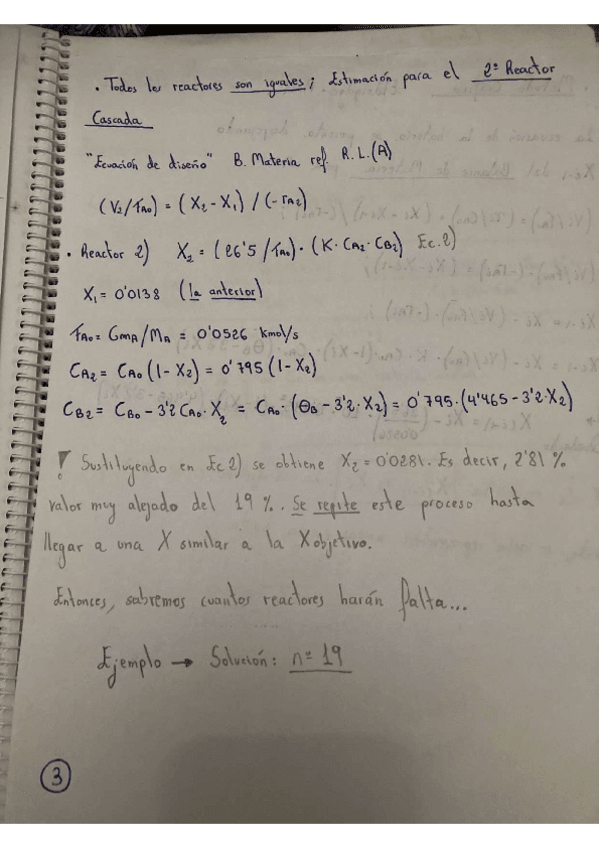 • Todos los reactores son iguales; Estimación para el 2º Reactor
Cascada
"Ecuación de diseño" B. Materia ref. R.L.(A)
(V2/FA0) = (X2 - X1) / (-rA2)
• Reactor 2) X2 = (26'5/FA0) · (K · CA2 · CB2) Ec.2)
X1 = 0'0138 (la anterior)
FA0 = GmA/MA = 0'0526 kmol/s
CA2 = CA0 (1 - X2) = 0'795 (1 - X2)
CB2 = CB0 - 3'2 CA0 · X2 = CA0 · (θB - 3'2 · X2) = 0'795 · (4'465 - 3'2 · X2)
! Sustituyendo en Ec 2) se obtiene X2 = 0'0281. Es decir, 2'81 %
valor muy alejado del 19 %. Se repite este proceso hasta
llegar a una X similar a la Xobjetivo.
Entonces, sabremos cuantos reactores harán falta...
Ejemplo → Solución: nº 19
3